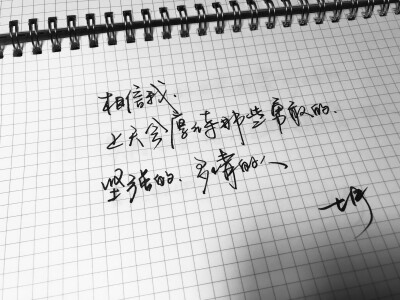 相信我.
上天会厚待那些勇敢的.
坚强的.多情的人